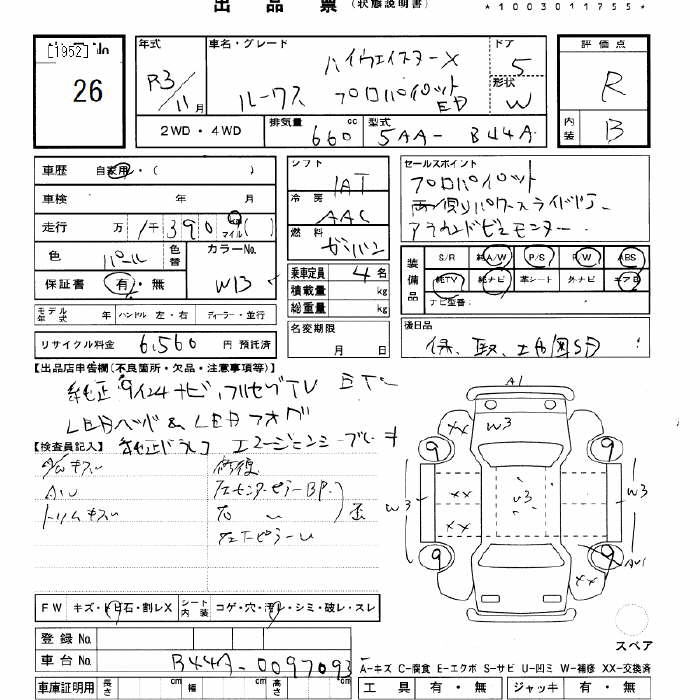 出 品 票 (状態説明書)
*1003011755*
[1952] No
26
年式
R3/11月
車名・グレード
ハイウェイスターX
ルークス プロパイロット ED
ドア
5
形状
W
評価点
R
内装
B
2WD・4WD
排気量 660 cc
型式 5AA- B44A
車歴 自家用・( )
車検 年 月
走行 万 1千390 マイル( )
色 パール 色替 カラーNo. W13
保証書 有・無
モデル年式 年 ハンドル 左・右 ディーラー・並行
リサイクル料金 6,560 円 預託済
シフト IAT
冷房 AAC
燃料 ガソリン
乗車定員 4 名
積載量 kg
総重量 kg
名変期限
月 日
セールスポイント
プロパイロット
両側パワースライドドア
アラウンドビューモニター
装備品
S/R 純A/W P/S P/W ABS
純TV 純ナビ 革シート 外ナビ エアB
ナビ型番:
後日品
保、取、
【出品店申告欄(不良箇所・欠品・注意事項等)】
純正9インチナビ、フルセグTV ETC
LEDヘッド&LEDフォグ
純正ドラレコ エマージェンシーブレーキ
【検査員記入】
ダムキズ
AU
トリムキズ
修復
左センターピラーBP
右 〃
歪
A1
W3
XX
9
9
W3
XX
W3
XX
W3
9
9
XX
AU1
FW キズ・トビ石・割レX シート内装 コゲ・穴・汚レ・シミ・破レ・スレ
スペア
登録No.
車台No. B44A-0097093
A-キズ C-腐食 E-エクボ S-サビ U-凹ミ W-補修 XX-交換済
車庫証明用 長さ cm 幅 cm 高さ cm
工具 有・無 ジャッキ 有・無